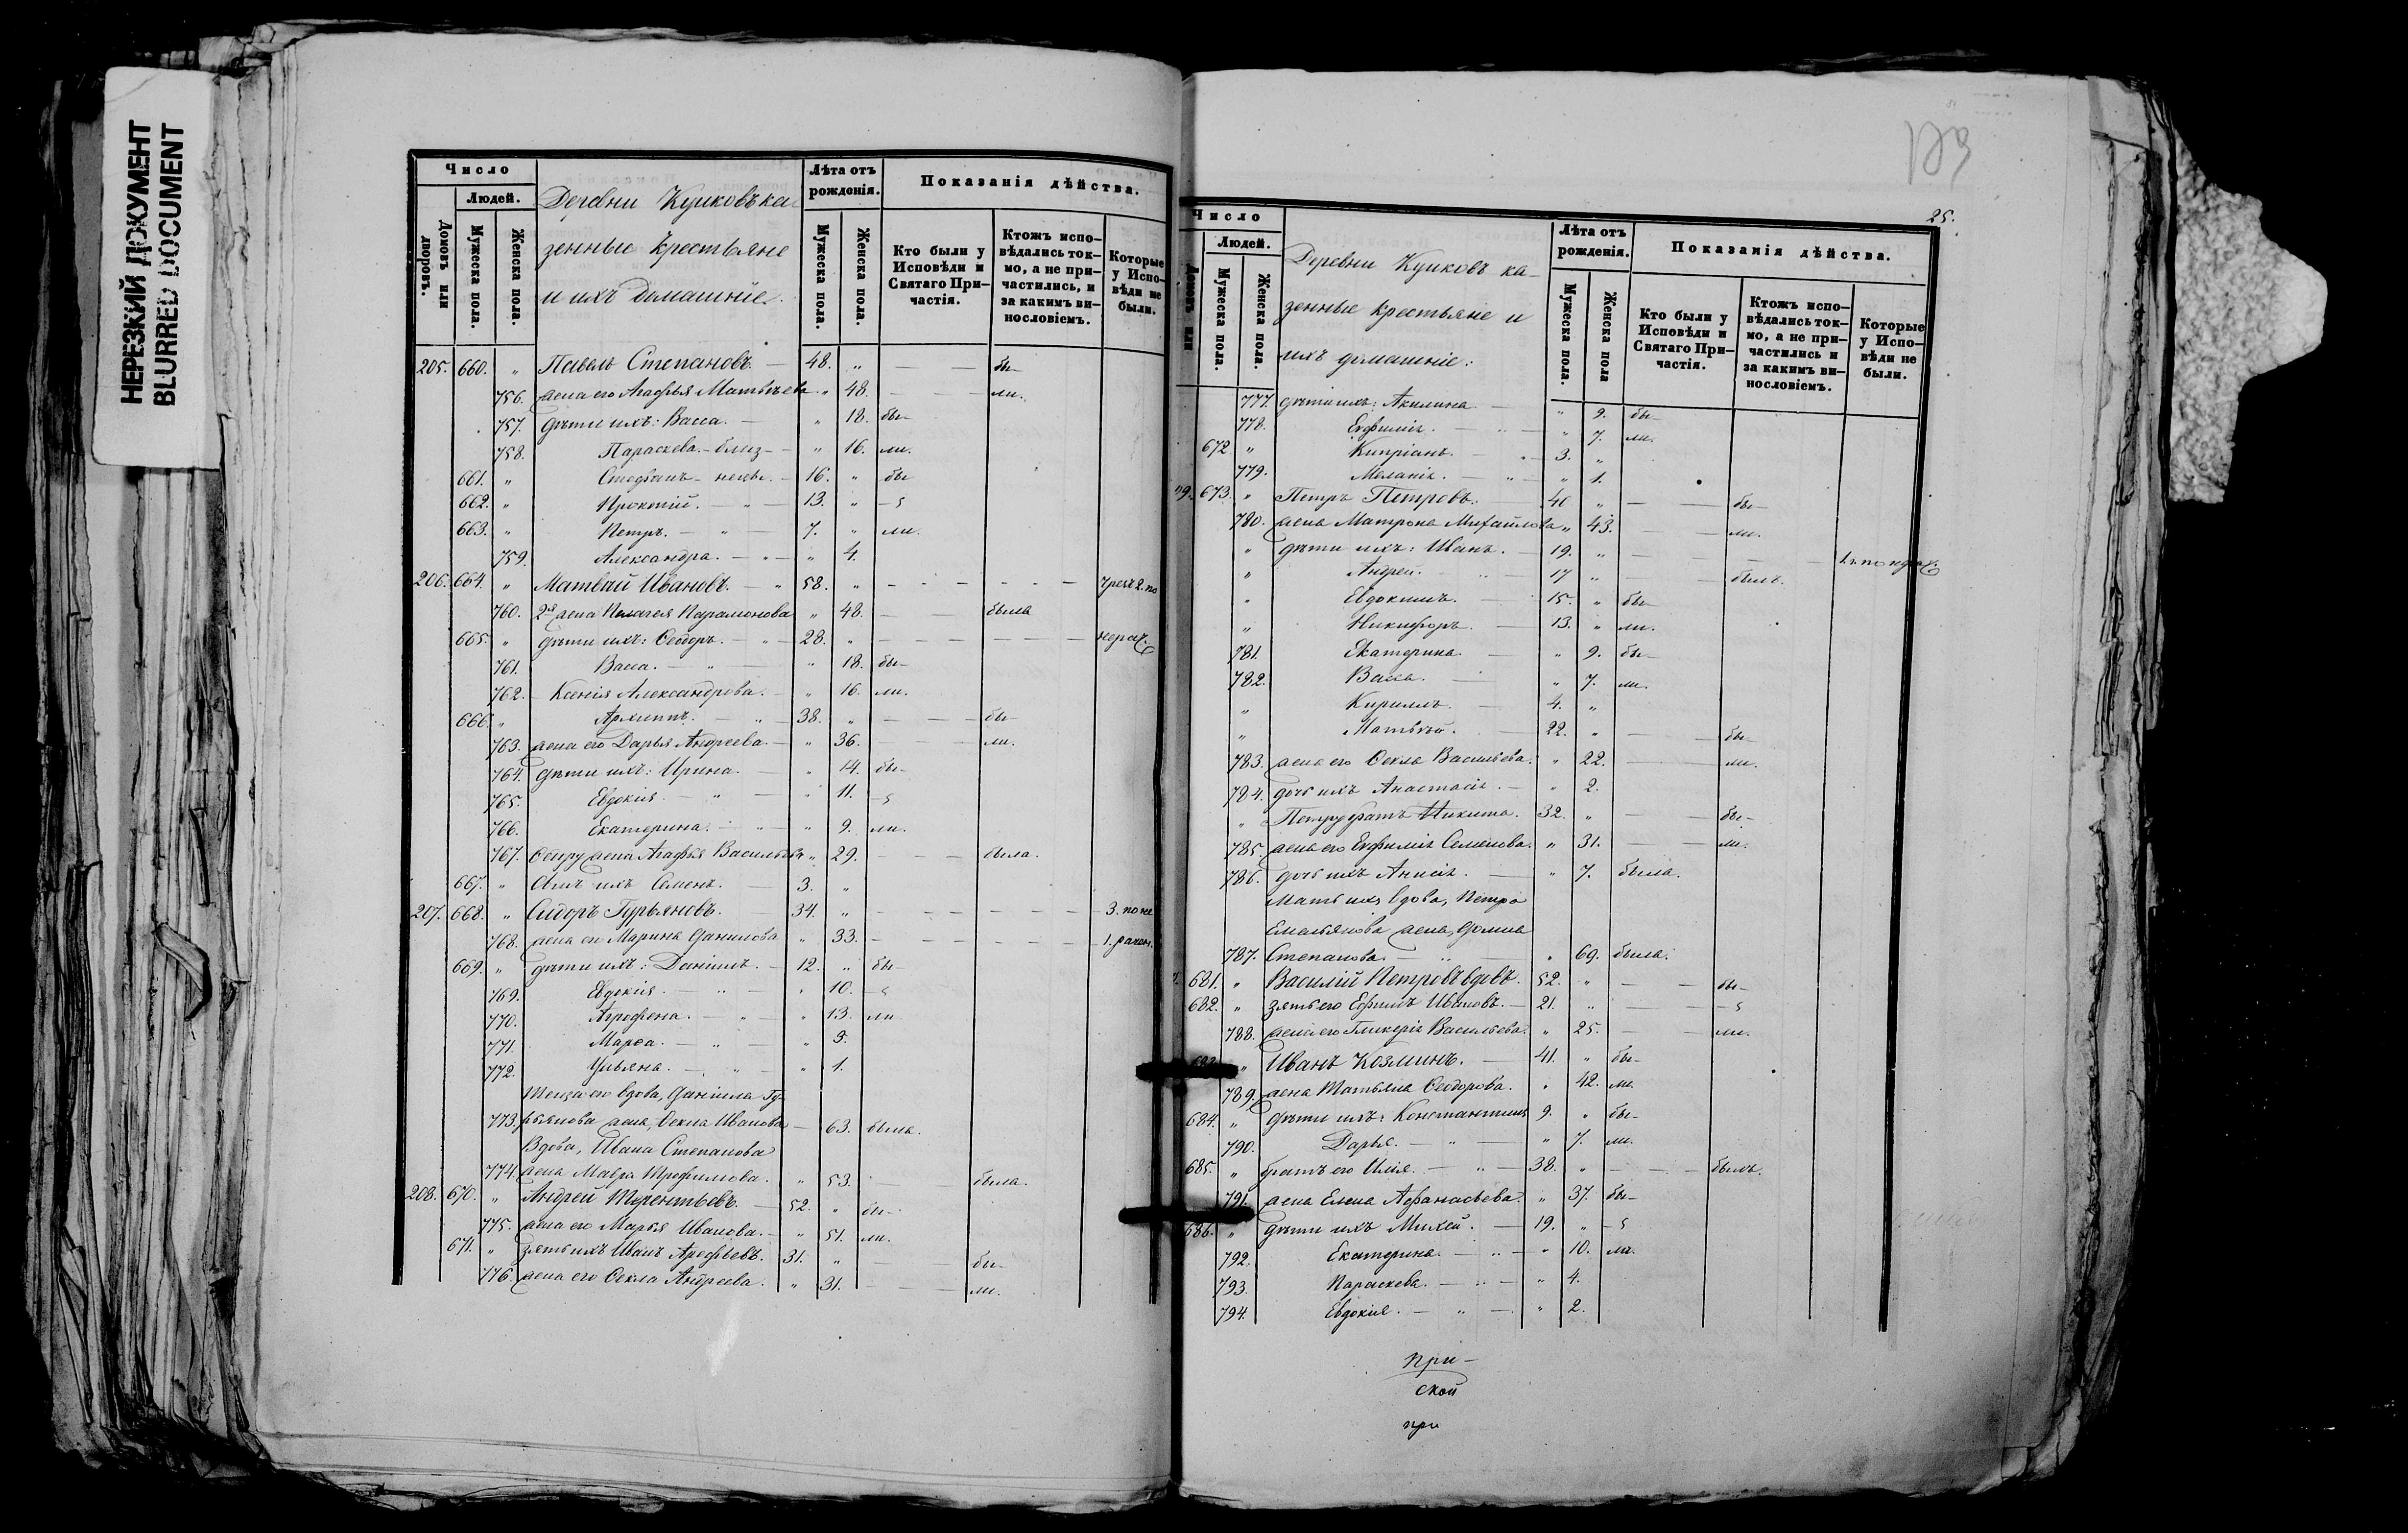 НЕРЕЗКИЙ ДОКУМЕНТ
BLURRED DOCUMENT
Число
Людей.
Домовъ или дворовъ.
Мужеска пола.
Женска пола.
Деревни Куиковъ ка-
зенные крестьяне
и ихъ домашніе.
Лѣта отъ рожденія.
Мужеска пола.
Женска пола.
Показанія дѣйства.
Кто были у Исповѣди и Святаго Причастія.
Ктожъ исповѣдались токмо, а не причастились, и за какимъ винословіемъ.
Которые у Исповѣди не были.
205. 660. „ Павелъ Степановъ. — 48. „ — — бы-
756. жена его Агафья Матвѣева „ 48. — — ли.
757. дѣти ихъ: Васса. — „ 18. бы-
758. Параскева. - близ- „ 16. ли.
661. „ Стефанъ - 16. „ бы-
662. „ Прокопій. — „ — 13. „ -
663. „ Петръ. — „ — 7. „ ли.
759. Александра. — „ — „ 4.
206. 664. „ Матвѣй Ивановъ. — „ 58. „ — — — — — — чрезъ 2. по
760. 2я жена Пелагея Парамонова „ 48. — была
665. „ дѣти ихъ: Ѳеодоръ. — „ — 28. „ — — — — — нерад.
761. Васса. — „ — „ 18. бы-
762. - Ксенія Александрова. — „ 16. ли.
666. „ Архиппъ. — „ — 38. „ — — бы-
763. жена его Дарья Андреева. — „ 36. — — ли.
764. дѣти ихъ: Ирина. — „ 14. бы-
765. Евдокія. — „ — „ 11. -
766. Екатерина. — „ — „ 9. ли.
767. Ѳедору жена Агафья Васильева „ 29. — — была.
667. „ Сынъ ихъ Семенъ. — 3. „
207. 668. „ Сидоръ Гурьяновъ. — 34. „ — — — — — — 3. по не
768. жена его Марина Данилова „ 33. — — — — — — 1. радѣн.
669. „ дѣти ихъ: Даніилъ. — 12. „ бы-
769. Евдокія. — „ — „ 10. -
770. Агрофена. — „ — „ 13. ли
771. Марѳа. — „ — „ 3.
772. Ульяна. — „ — „ 1.
Теща его вдова, Даніила Гу-
773. рьянова жена, Ѳекла Иванова — 63. была.
Вдова, Ивана Степанова
774. жена Мавра Трофимова. „ 53. — — была.
208. 670. „ Андрей Терентьевъ. — 52. „ бы-
775. жена его Марья Иванова. — „ 51. ли.
671. „ зять ихъ Иванъ Арефьевъ. 31. „ — бы-
776. жена его Ѳекла Андреева. „ 31. — — ли.
25.
Число
Людей.
Домовъ или
Мужеска пола.
Женска пола.
Деревни Куиковъ ка-
зенные крестьяне и
ихъ домашніе:
Лѣта отъ рожденія.
Мужеска пола.
Женска пола
Показанія дѣйства.
Кто были у Исповѣди и Святаго Причастія.
Ктожъ исповѣдались токмо, а не причастились и за какимъ винословіемъ.
Которые у Исповѣди не были.
777. дѣти ихъ: Акилина. — „ 9. бы-
778. Евфимія. — „ — „ 7. ли.
672. „ Кипріанъ. — „ 3. „
779. Меланія. — „ — „ 1.
9. 673. „ Петръ Петровъ. 40 „ — — бы-
780. жена Матрона Михайлова „ 43. — — ли.
„ дѣти ихъ: Иванъ. — 19. „ — — — 1. по нерад.
„ Андрей. — „ — 17 „ — — былъ.
„ Евдокимъ. — 15. „ бы-
„ Никифоръ. — 13. „ ли.
781. Екатерина. — „ 9. бы-
782. Васса. — „ 7. ли.
„ Кириллъ. — 4. „
„ Матвѣй. — 22. „ — — бы-
783. жена его Ѳекла Васильева. „ 22. — — ли.
784. дочь ихъ Анастасія. — „ 2.
„ Петру братъ Никита. 32. „ — — бы-
785. жена его Евфимія Семенова. „ 31. — — ли.
786. дочь ихъ Анисія. — „ 7. была.
Мать ихъ вдова, Петра
Емельянова жена, Домна
787. Степанова. — „ — „ 69. была.
681. „ Василій Петровъ вдовъ. 52. „ — — бы-
682. „ зять его Ефимъ Ивановъ. — 21. „ — — -
788. жена его Гликерія Васильева. „ 25. — — ли.
683. „ Иванъ Козминъ. — 41. „ бы-
789. жена Татьяна Ѳеодорова. „ 42. ли.
684. „ дѣти ихъ: Константинъ 9. „ бы-
790. Дарья. — „ — „ 7. ли.
685. „ братъ его Илія. — „ — 38. „ — — былъ.
791. жена Елена Аѳанасьева. „ 37. бы-
686. „ дѣти ихъ Михей. — 19. „ -
792. Екатерина. — „ — „ 10. ли.
793. Параскева. — „ — „ 4.
794. Евдокія. — „ — „ 2.
при-
ской
при